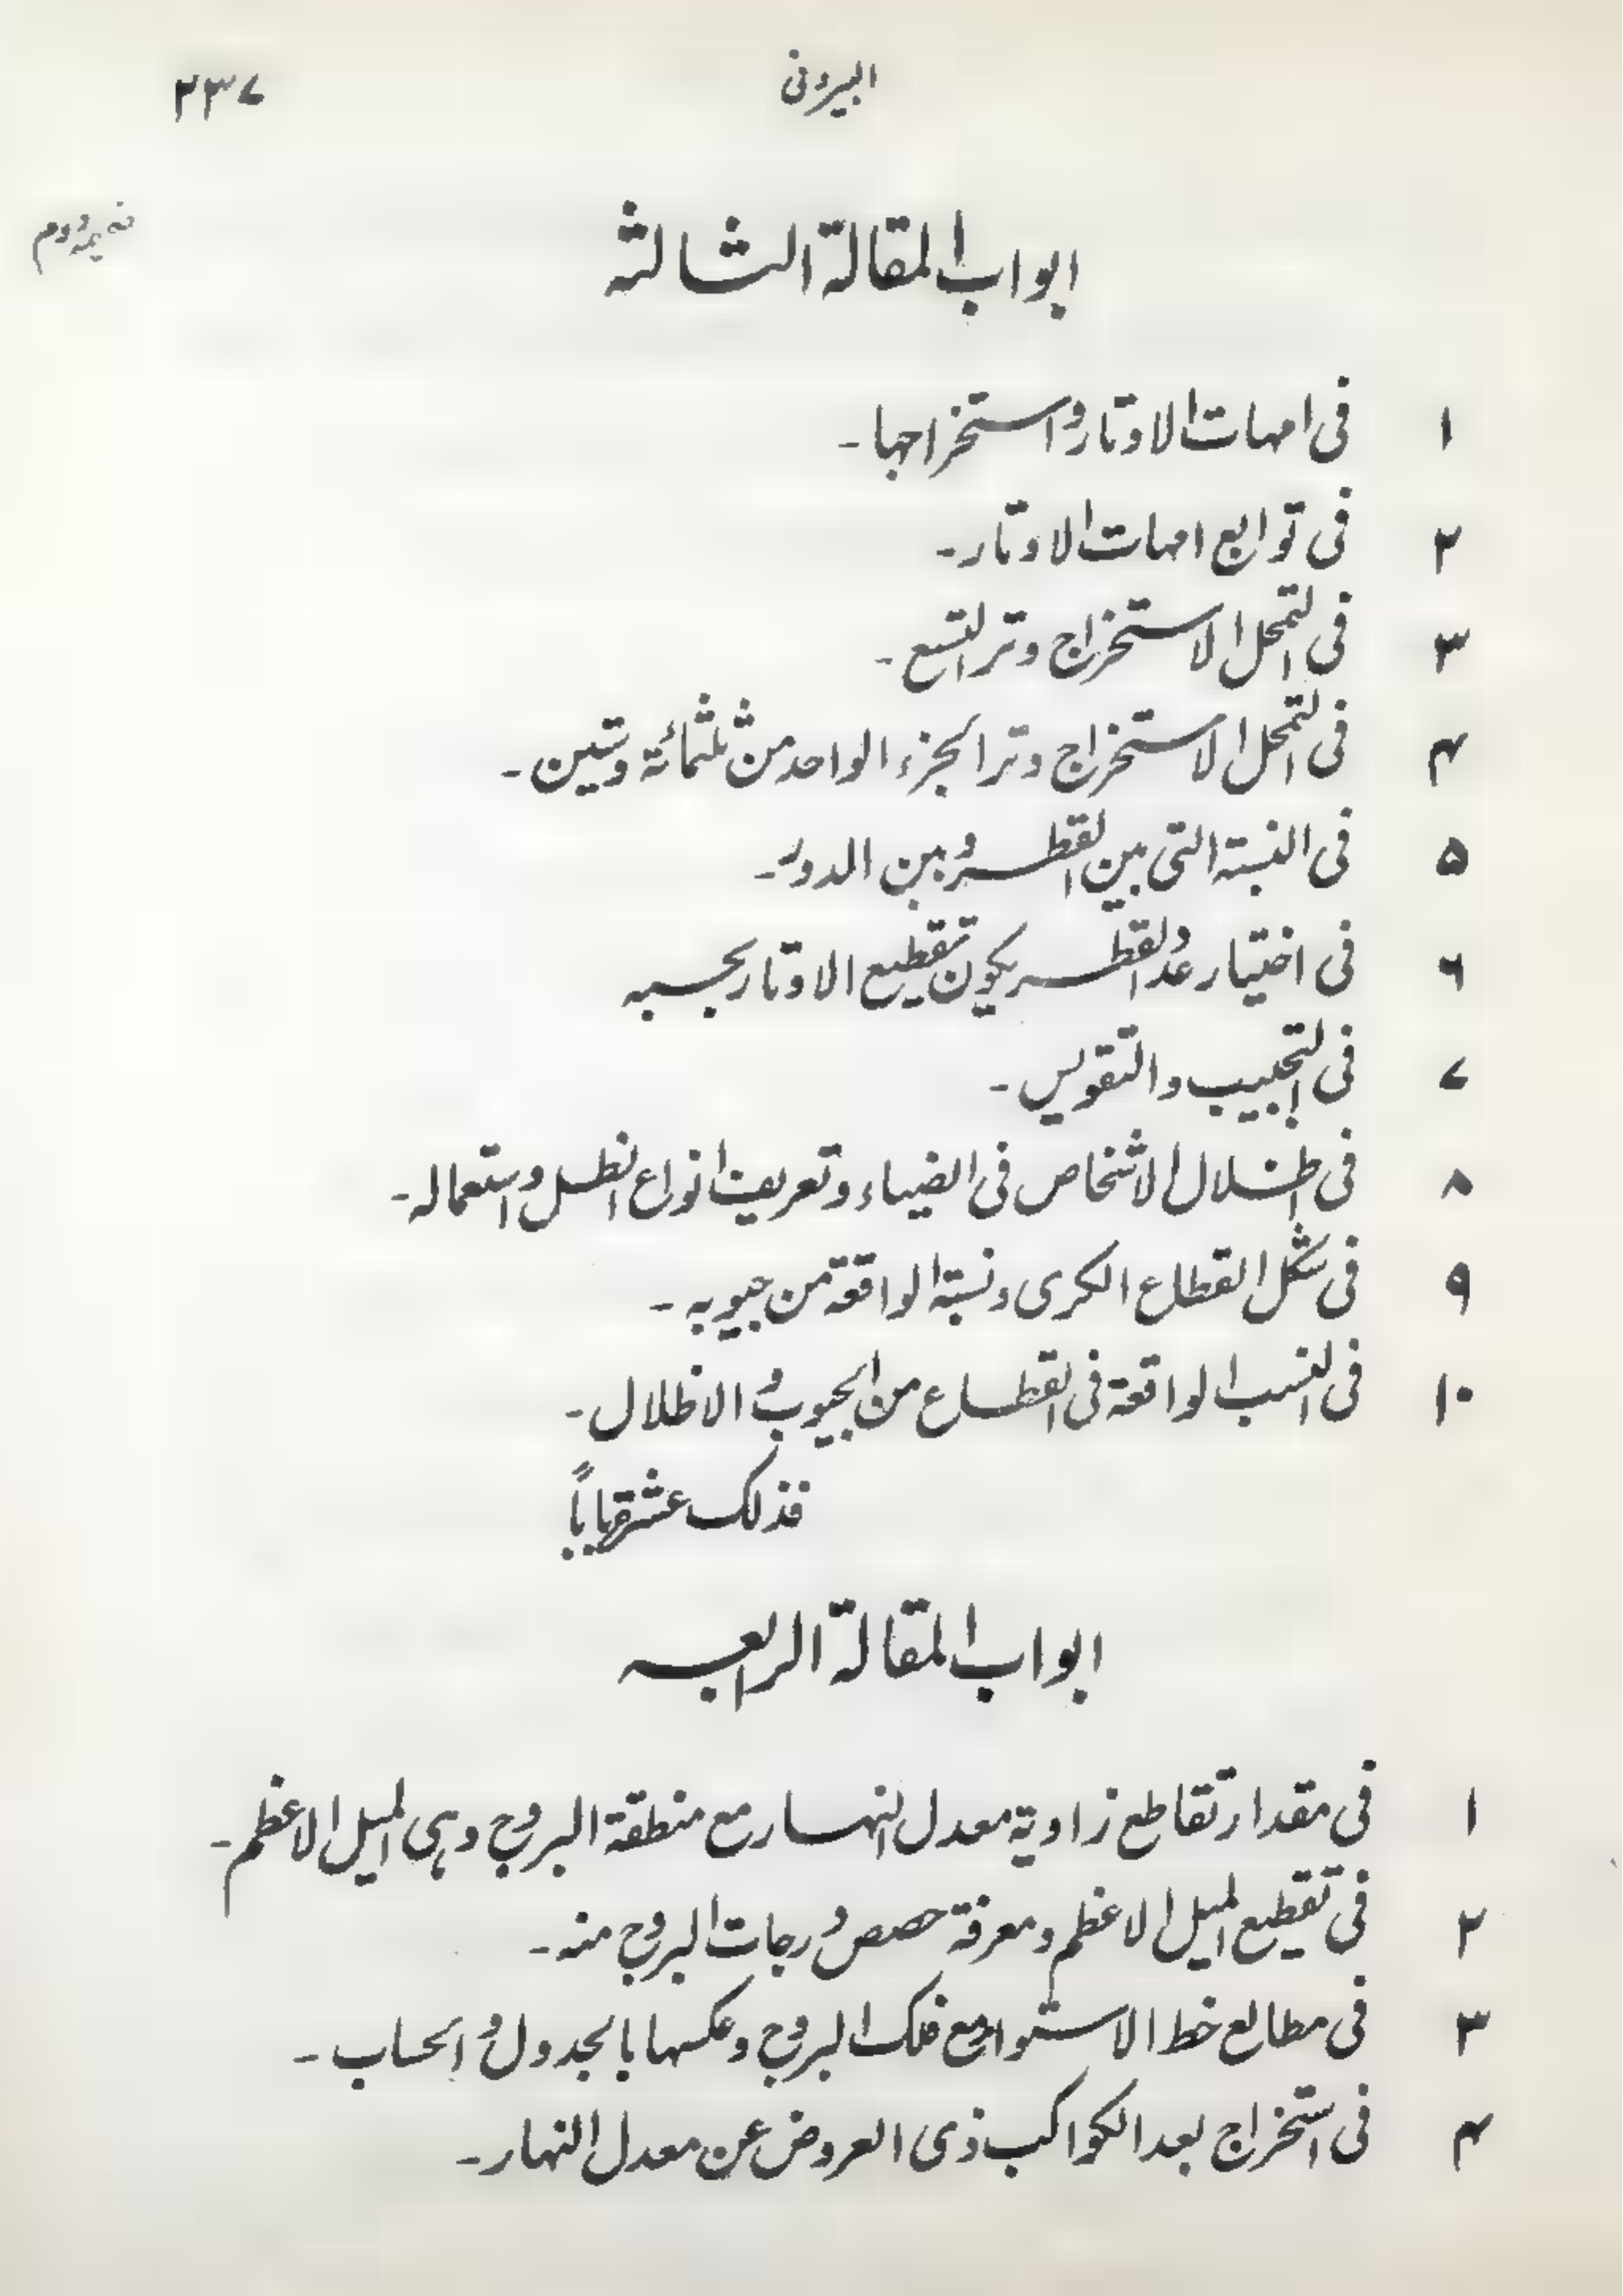 البیرونی
۲۳۷
ضمیمہ دوم
ابواب المقالة الثالثه
۱ فی امهات الاوتار واستخراجها ۔
۲ فی توابع امهات الاوتار ۔
۳ فی التمحل الاستخراج وتر التسع ۔
۴ فی التمحل الاستخراج وتر الجزء الواحد من ثلثمائة وستین ۔
۵ فی النسبة التی بین القطر وبین الدور ۔
۶ فی اختیار عدد القطر یکون تقطیع الاوتار بحسبه
۷ فی التجییب والتقویس ۔
۸ فی اظلال الاشخاص فی الضیاء وتعریف انواع الظل واستعماله ۔
۹ فی شکل القطاع الکری ونسبة الواقعة من جیوبه ۔
۱۰ فی النسب الواقعة فی القطاع من الجیوب والاظلال ۔
فذلک عشرة باباً
ابواب المقالة الرابعه
۱ فی مقدار تقاطع زاویة معدل النهار مع منطقة البروج وهی المیل الاعظم ۔
۲ فی تقطیع المیل الاعظم ومعرفة حصص درجات البروج منه ۔
۳ فی مطالع خط الاستواء مع فلک البروج وعکسها بالجدول والحساب ۔
۴ فی استخراج بعد الکواکب ذی العروض عن معدل النهار ۔